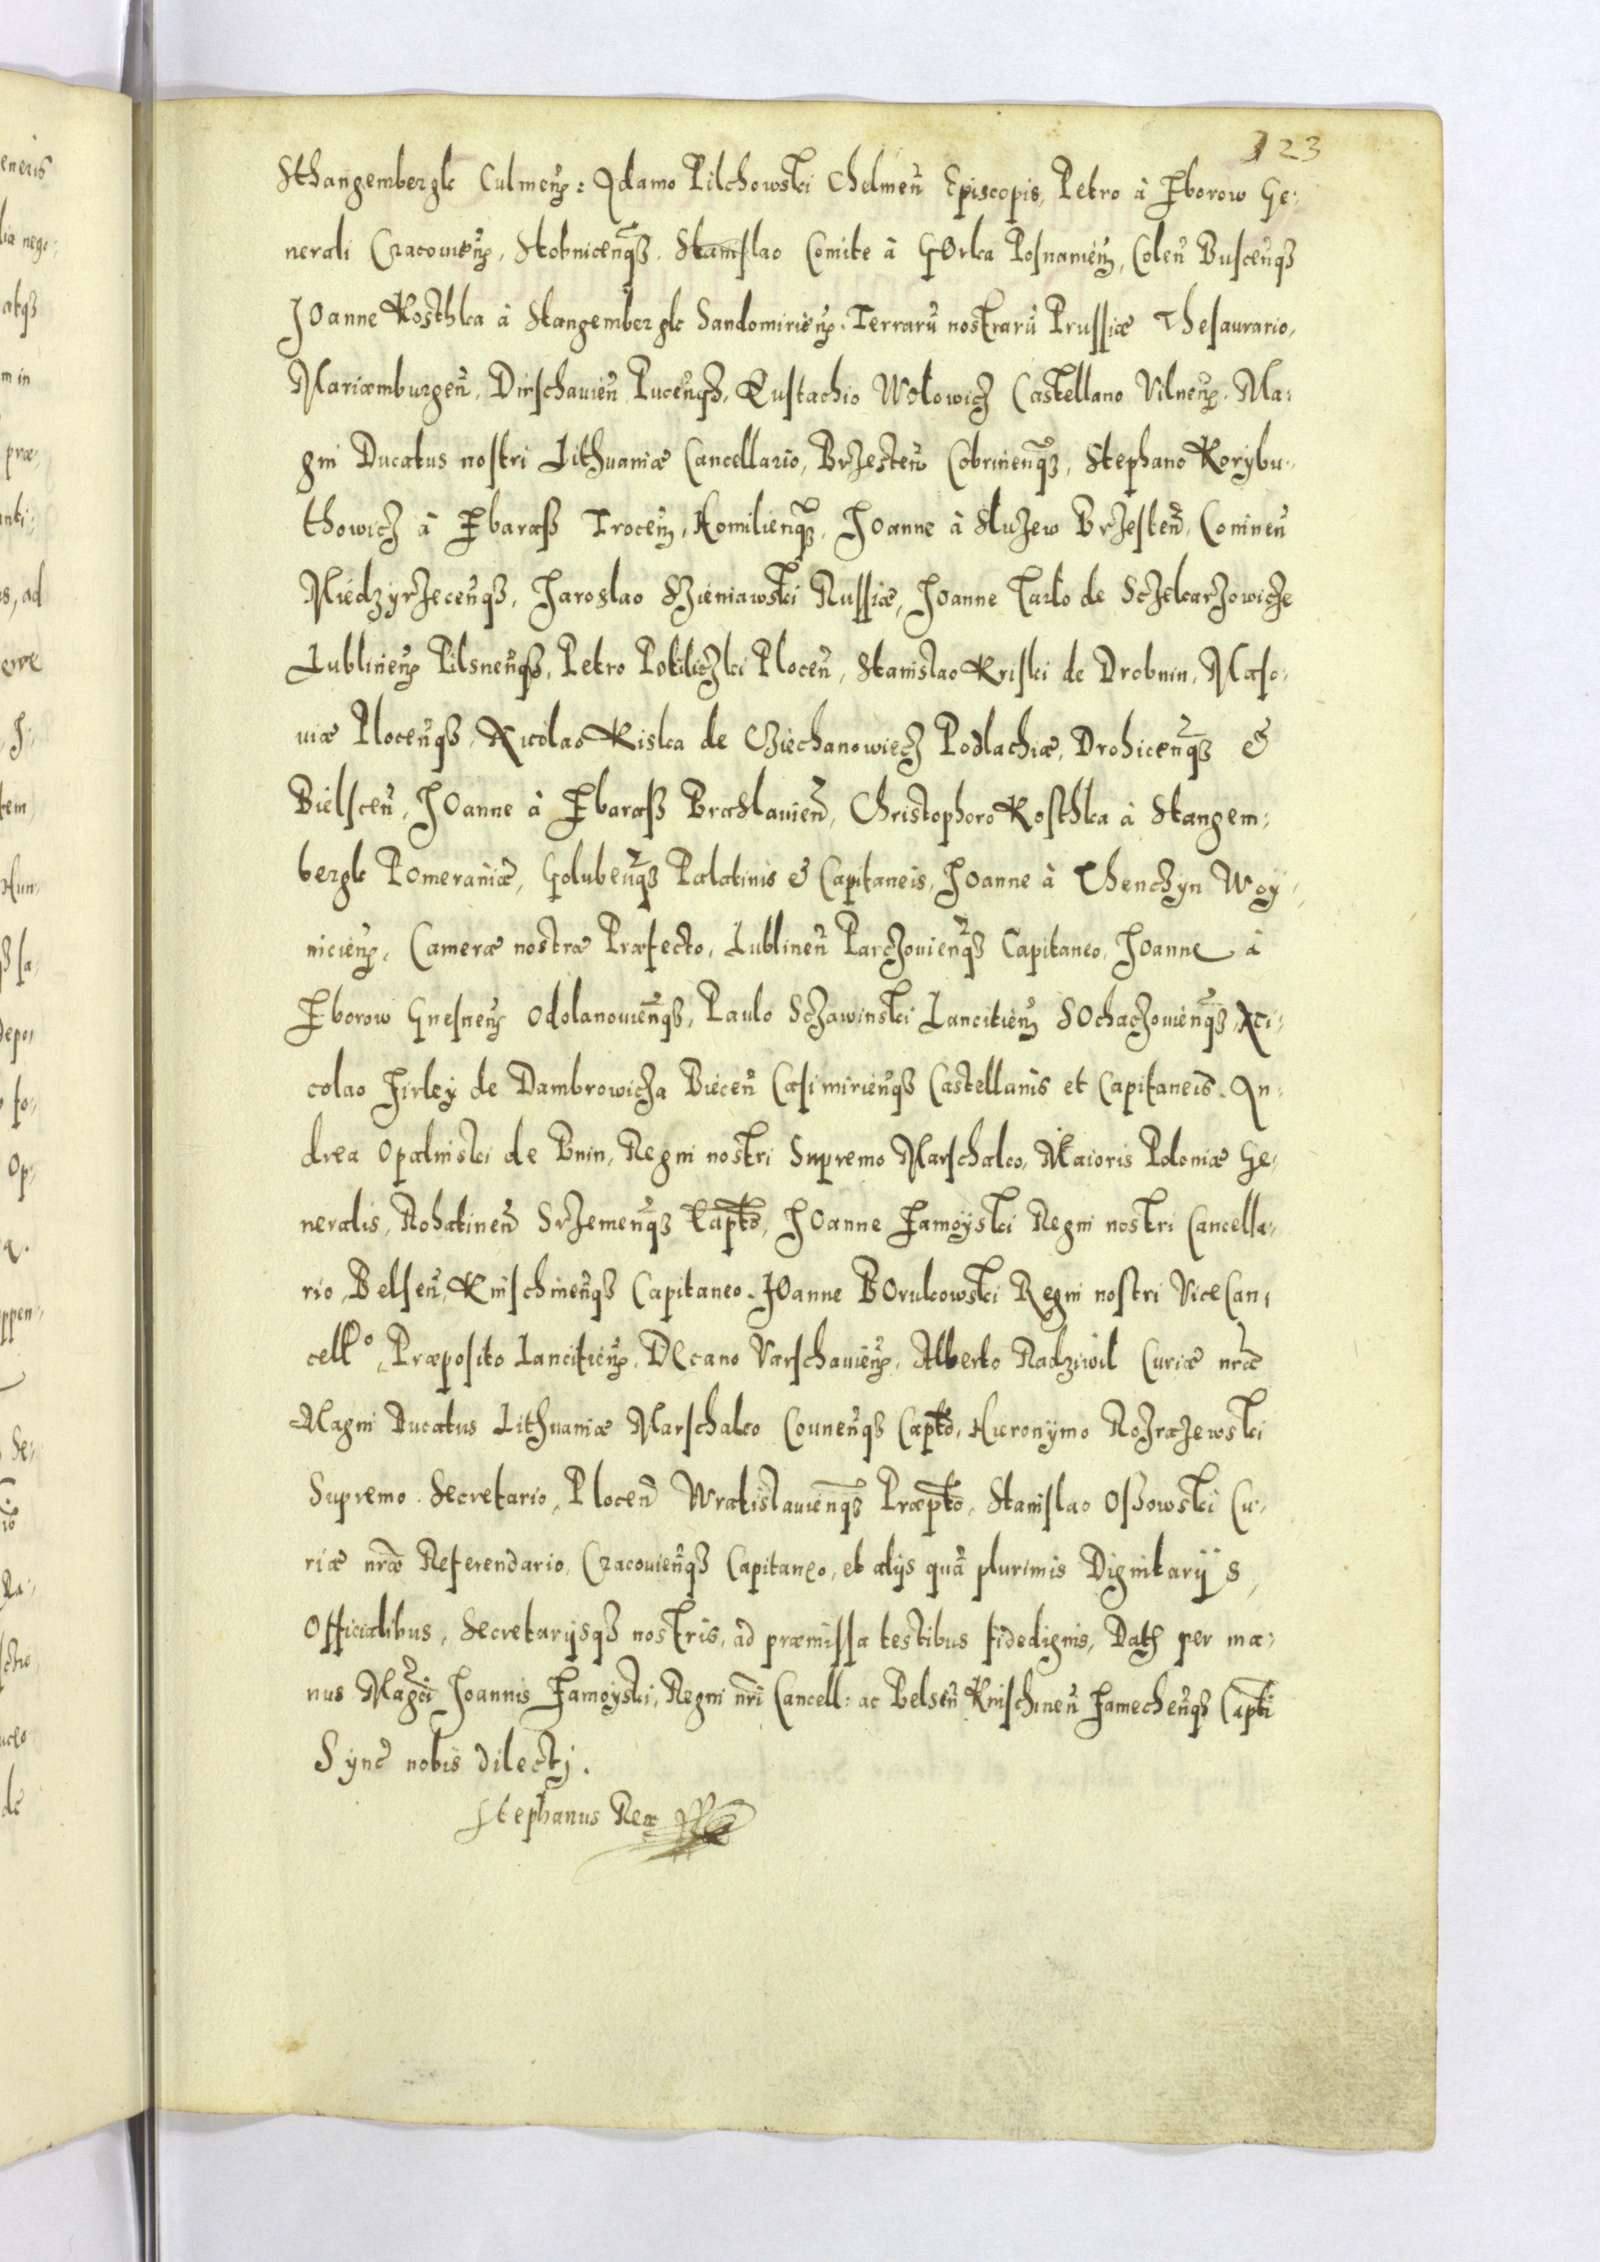 123
Sthangembergk Culmeñ: Adamo Pilchowski Chelmeñ Episcopis, Petro à Zborow Ge:
nerali Cracovieñ, Stobniceñqz. Stanislao Comite à Gorka Posnanieñ, Coleñ Busceñqz
Joanne Kosthka à Stangembergk Sandomirieñ. Terrarũ nostrarũ Prussiæ Thesaurario,
Mariæmburgeñ, Dirschavieñ Puceñqz, Eustachio Wolowicz Castellano Vilneñ. Ma:
gni Ducatus nostri Lithuaniæ Cancellario, Brzesteñ Cobrineñqz, Stephano Korybu:
thowicz à Zbaraß Troceñ, Homilieñqz, Joanne à Sluzew Brzesteñ, Conineñ
Miedzyrzeceñqz, Jaroslao Sieniawski Russiæ, Joanne Tarlo de Sczekarzowicze
Lublineñ Pilsneñqz, Petro Potuliczki Ploceñ, Stanislao Kriski de Drobnin, Maso:
viæ Ploceñqz, Nicolao Kiska de Cziechanowiecz Podlachiæ, Drohiceñqz &
Bielsceñ, Joanne à Zbaraß Braslavieñ, Christophoro Kosthka à Stangem:
bergk Pomeraniæ, Golubeñqz Palatinis & Capitaneis, Joanne à Thenczyn Woy:
nicieñ, Cameræ nostræ Præfecto, Lublineñ Parczovieñqz Capitaneo, Joanne à
Zborow Gnesneñ Odolanovieñqz, Paulo Sczawinski Lancitieñ Sochaczovieñqz, Ni:
colao Firley de Dambrowicza Bieceñ Casimirieñqz Castellanis et Capitaneis. An:
drea Opalinski de Bnin, Regni nostri Supremo Marschalco, Maioris Poloniæ Ge:
neralis, Rohatineñ Srzemeñqz Captõ, Joanne Zamoyski Regni nostri Cancella:
rio, Belseñ, Knischineñqz Capitaneo. Joanne Borukowski Regni nostri Vicecan:
cellº, Præposito Lancitieñ. Decano Varschavieñ, Alberto Radziwil Curiæ nr̃æ
Magni Ducatus Lithuaniæ Marschalco Couneñqz Captõ, Hieronymo Rozrazewski
Supremo Secretario, Ploceñ Wratislavieñqz Præptõ, Stanislao Ossowski Cu:
riæ nr̃æ Referendario, Cracovieñqz Capitaneo, et alijs quã plurimis Dignitarijs,
Officialibus, Secretarijsqz nostris, ad præmissa testibus fidedignis, Datũ per ma:
nus Magci Joannis Zamoyski, Regni nr̃i Cancell: ac Belseñ Knischineñ Zamecheñqz Capti
Synce nobis dilecti.
Stephanus Rex